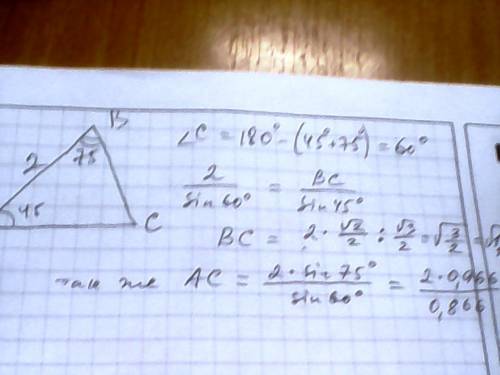 B
2
75
45
C
∠C = 180° - (45° + 75°) = 60°
2 / sin 60° = BC / sin 45°
BC = 2 · √2/2 : √3/2 = √3/2 =
так же AC = 2 · sin 75° / sin 60° = 2 · 0,966 / 0,866